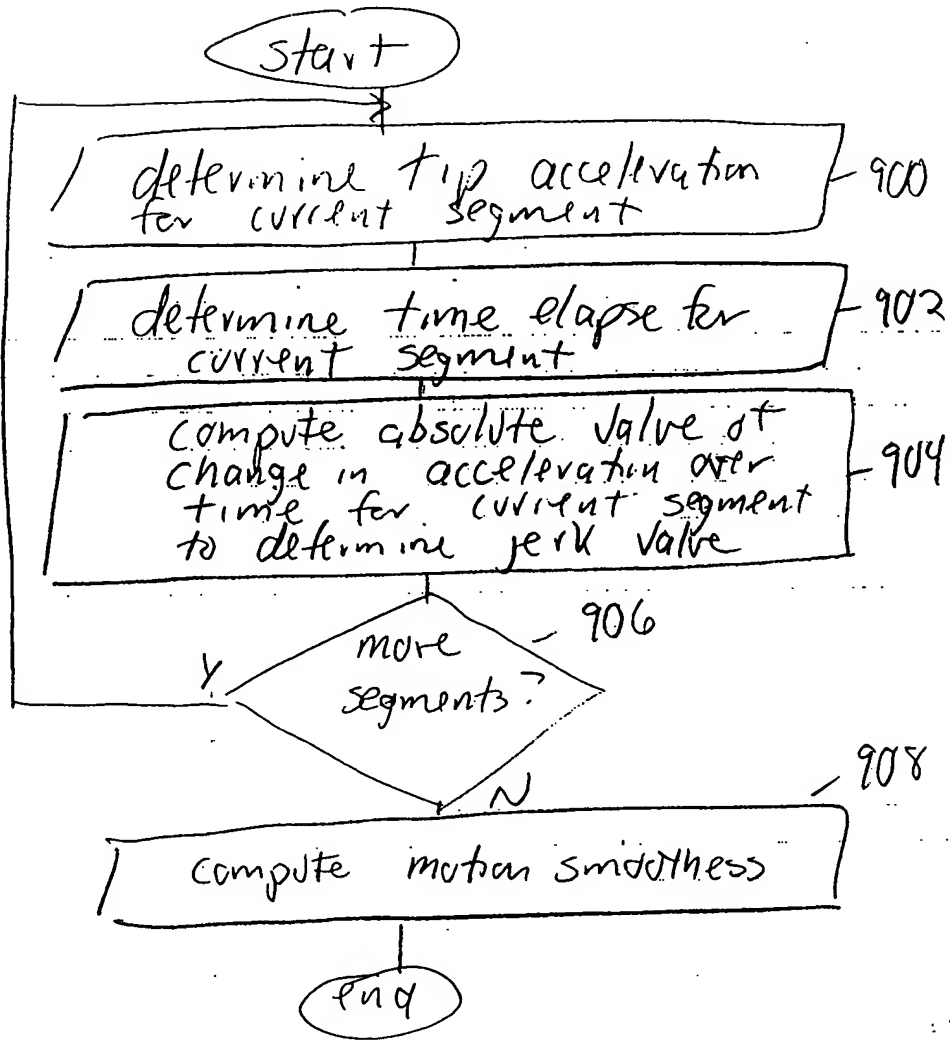 start
determine tip acceleration
for current segment
900
determine time elapse for
current segment
902
compute absolute value of
change in acceleration over
time for current segment
to determine jerk value
904
more
segments?
906
Y
N
908
compute motion smoothness
end